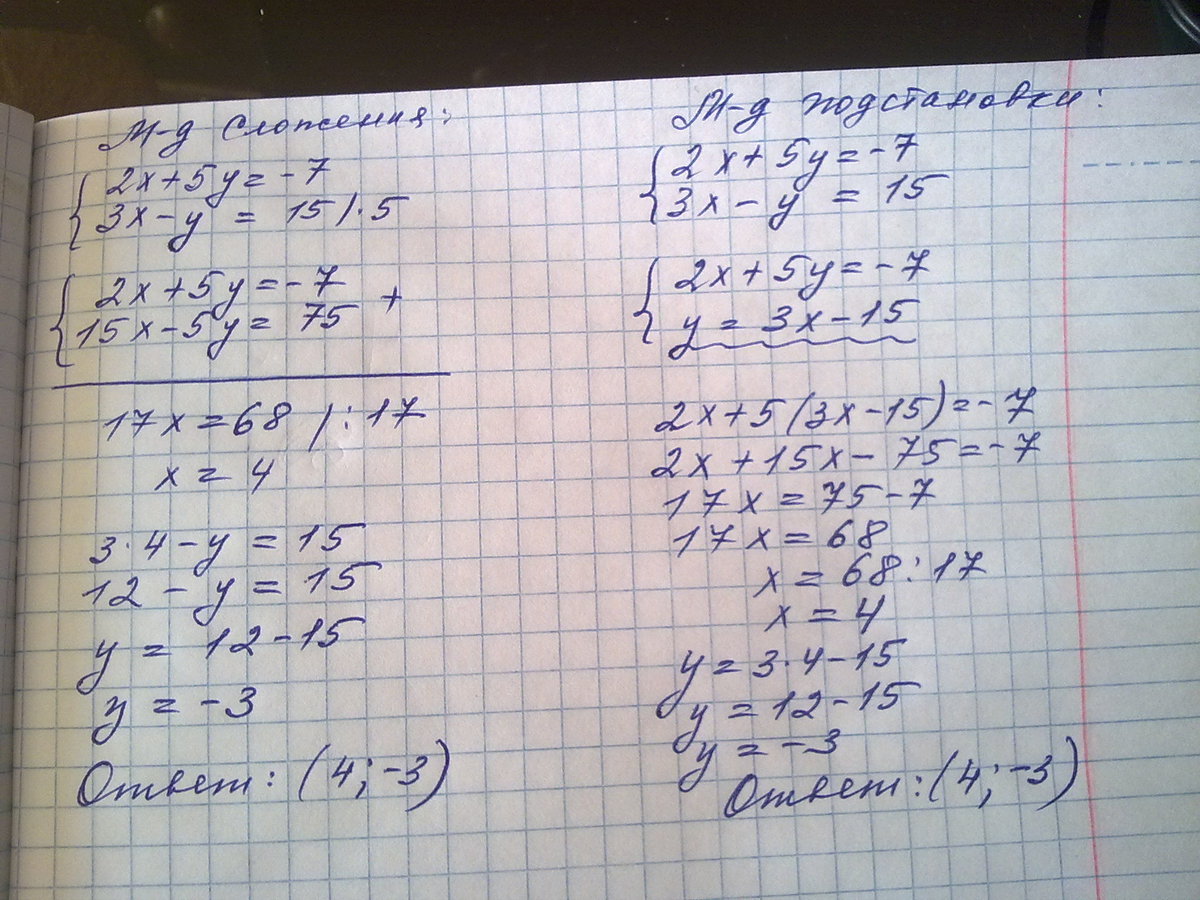 М-д сложения:
{ 2x+5y=-7
3x-y = 15 |·5
{ 2x+5y=-7
15x-5y= 75 +
17x=68 |:17
x= 4
3·4-y=15
12-y=15
y = 12-15
y = -3
Ответ: (4;-3)
М-д подстановки:
{ 2x+5y=-7
3x-y = 15
{ 2x+5y=-7
y = 3x-15
2x+5(3x-15)=-7
2x+15x-75=-7
17x=75-7
17x=68
x=68:17
x=4
y=3·4-15
y=12-15
y=-3
Ответ:(4;-3)